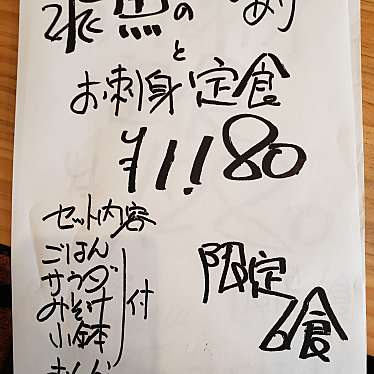 魚の
と
お刺身定食
¥1,180
セット内容
ごはん
サラダ
みそ汁
小鉢
付
限定
6食